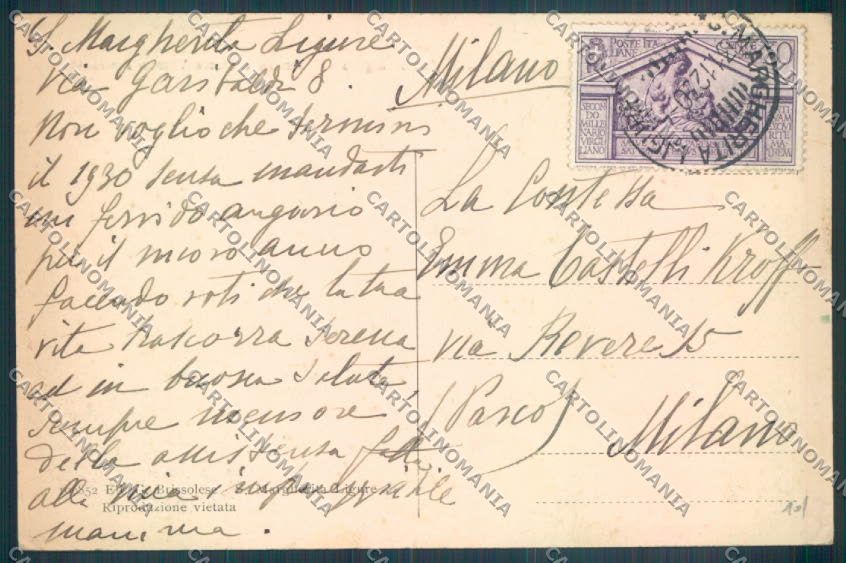 S. Margherita Ligure
Via Garibaldi 8
Non voglio che termini
il 1930 senza mandarti
un fervido augurio
per il nuovo anno
facendo voti che la tua
vita trascorra serena
ed in buona salute,
sempre
della assistenza
alla mia
mamma.
Milano
POSTE ITALIANE
SECONDO MILLENARIO VIRGILIANO
S. MARGHERITA LIGURE
La Contessa
Emma Castelli Kroff
via Revere 15
(Parco)
Milano
852 Brissolese S. Margherita Ligure
Riproduzione vietata
CARTOLINOMANIA